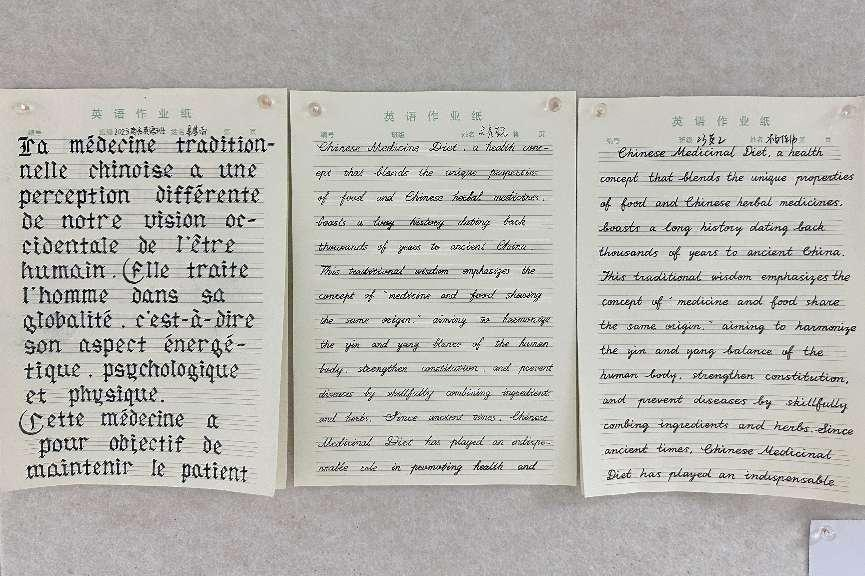 英语作业纸
编号 班级 2023 姓名 第 页
La médecine tradition-
nelle chinoise a une
perception différente
de notre vision oc-
cidentale de l'être
humain. Elle traite
l'homme dans sa
globalité, c'est-à-dire
son aspect énergé-
tique, psychologique
et physique.
Cette médecine a
pour objectif de
maintenir le patient
英语作业纸
编号 班级 姓名 第 页
Chinese Medicine Diet, a health conc-
ept that blends the unique properties
of food and Chinese herbal medicines,
boasts a long history dating back
thousands of years to ancient China.
This traditional wisdom emphasizes the
concept of "medicine and food showing
the same origin," aiming to harmonize
the yin and yang blance of the human
body, strengthen constitution and prevent
diseases by skillfully combining ingredients
and herbs. Since ancient times, Chinese
Medicinal Diet has played an indispe-
nsable role in promoting health and
英语作业纸
编号 班级 姓名 第 页
Chinese Medicinal Diet, a health
concept that blends the unique properties
of food and Chinese herbal medicines,
boasts a long history dating back
thousands of years to ancient China.
This traditional wisdom emphasizes the
concept of "medicine and food share
the same origin," aiming to harmonize
the yin and yang balance of the
human body, strengthen constitution,
and prevent diseases by skillfully
combing ingredients and herbs. Since
ancient times, Chinese Medicinal
Diet has played an indispensable